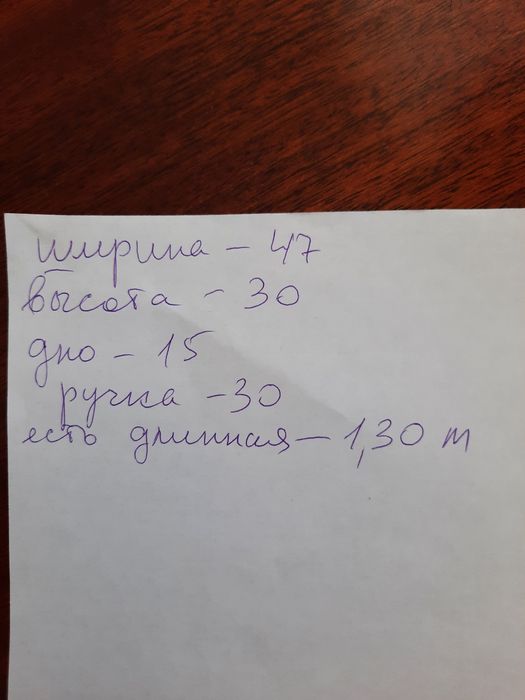 ширина - 47
высота - 30
дно - 15
ручка - 30
есть длинная - 1,30 m